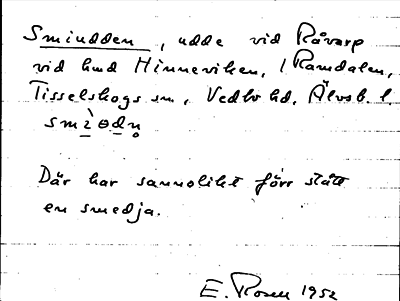 Smiudden, udde vid Råvarp
vid hmd Hinneviken, i Ramdalen,
Tisselskogs sn, Vedbo hd, Älvsb. l.
smìɵdn̥
Där har sannolikt förr stått
en smedja.
E. Rosen 1952